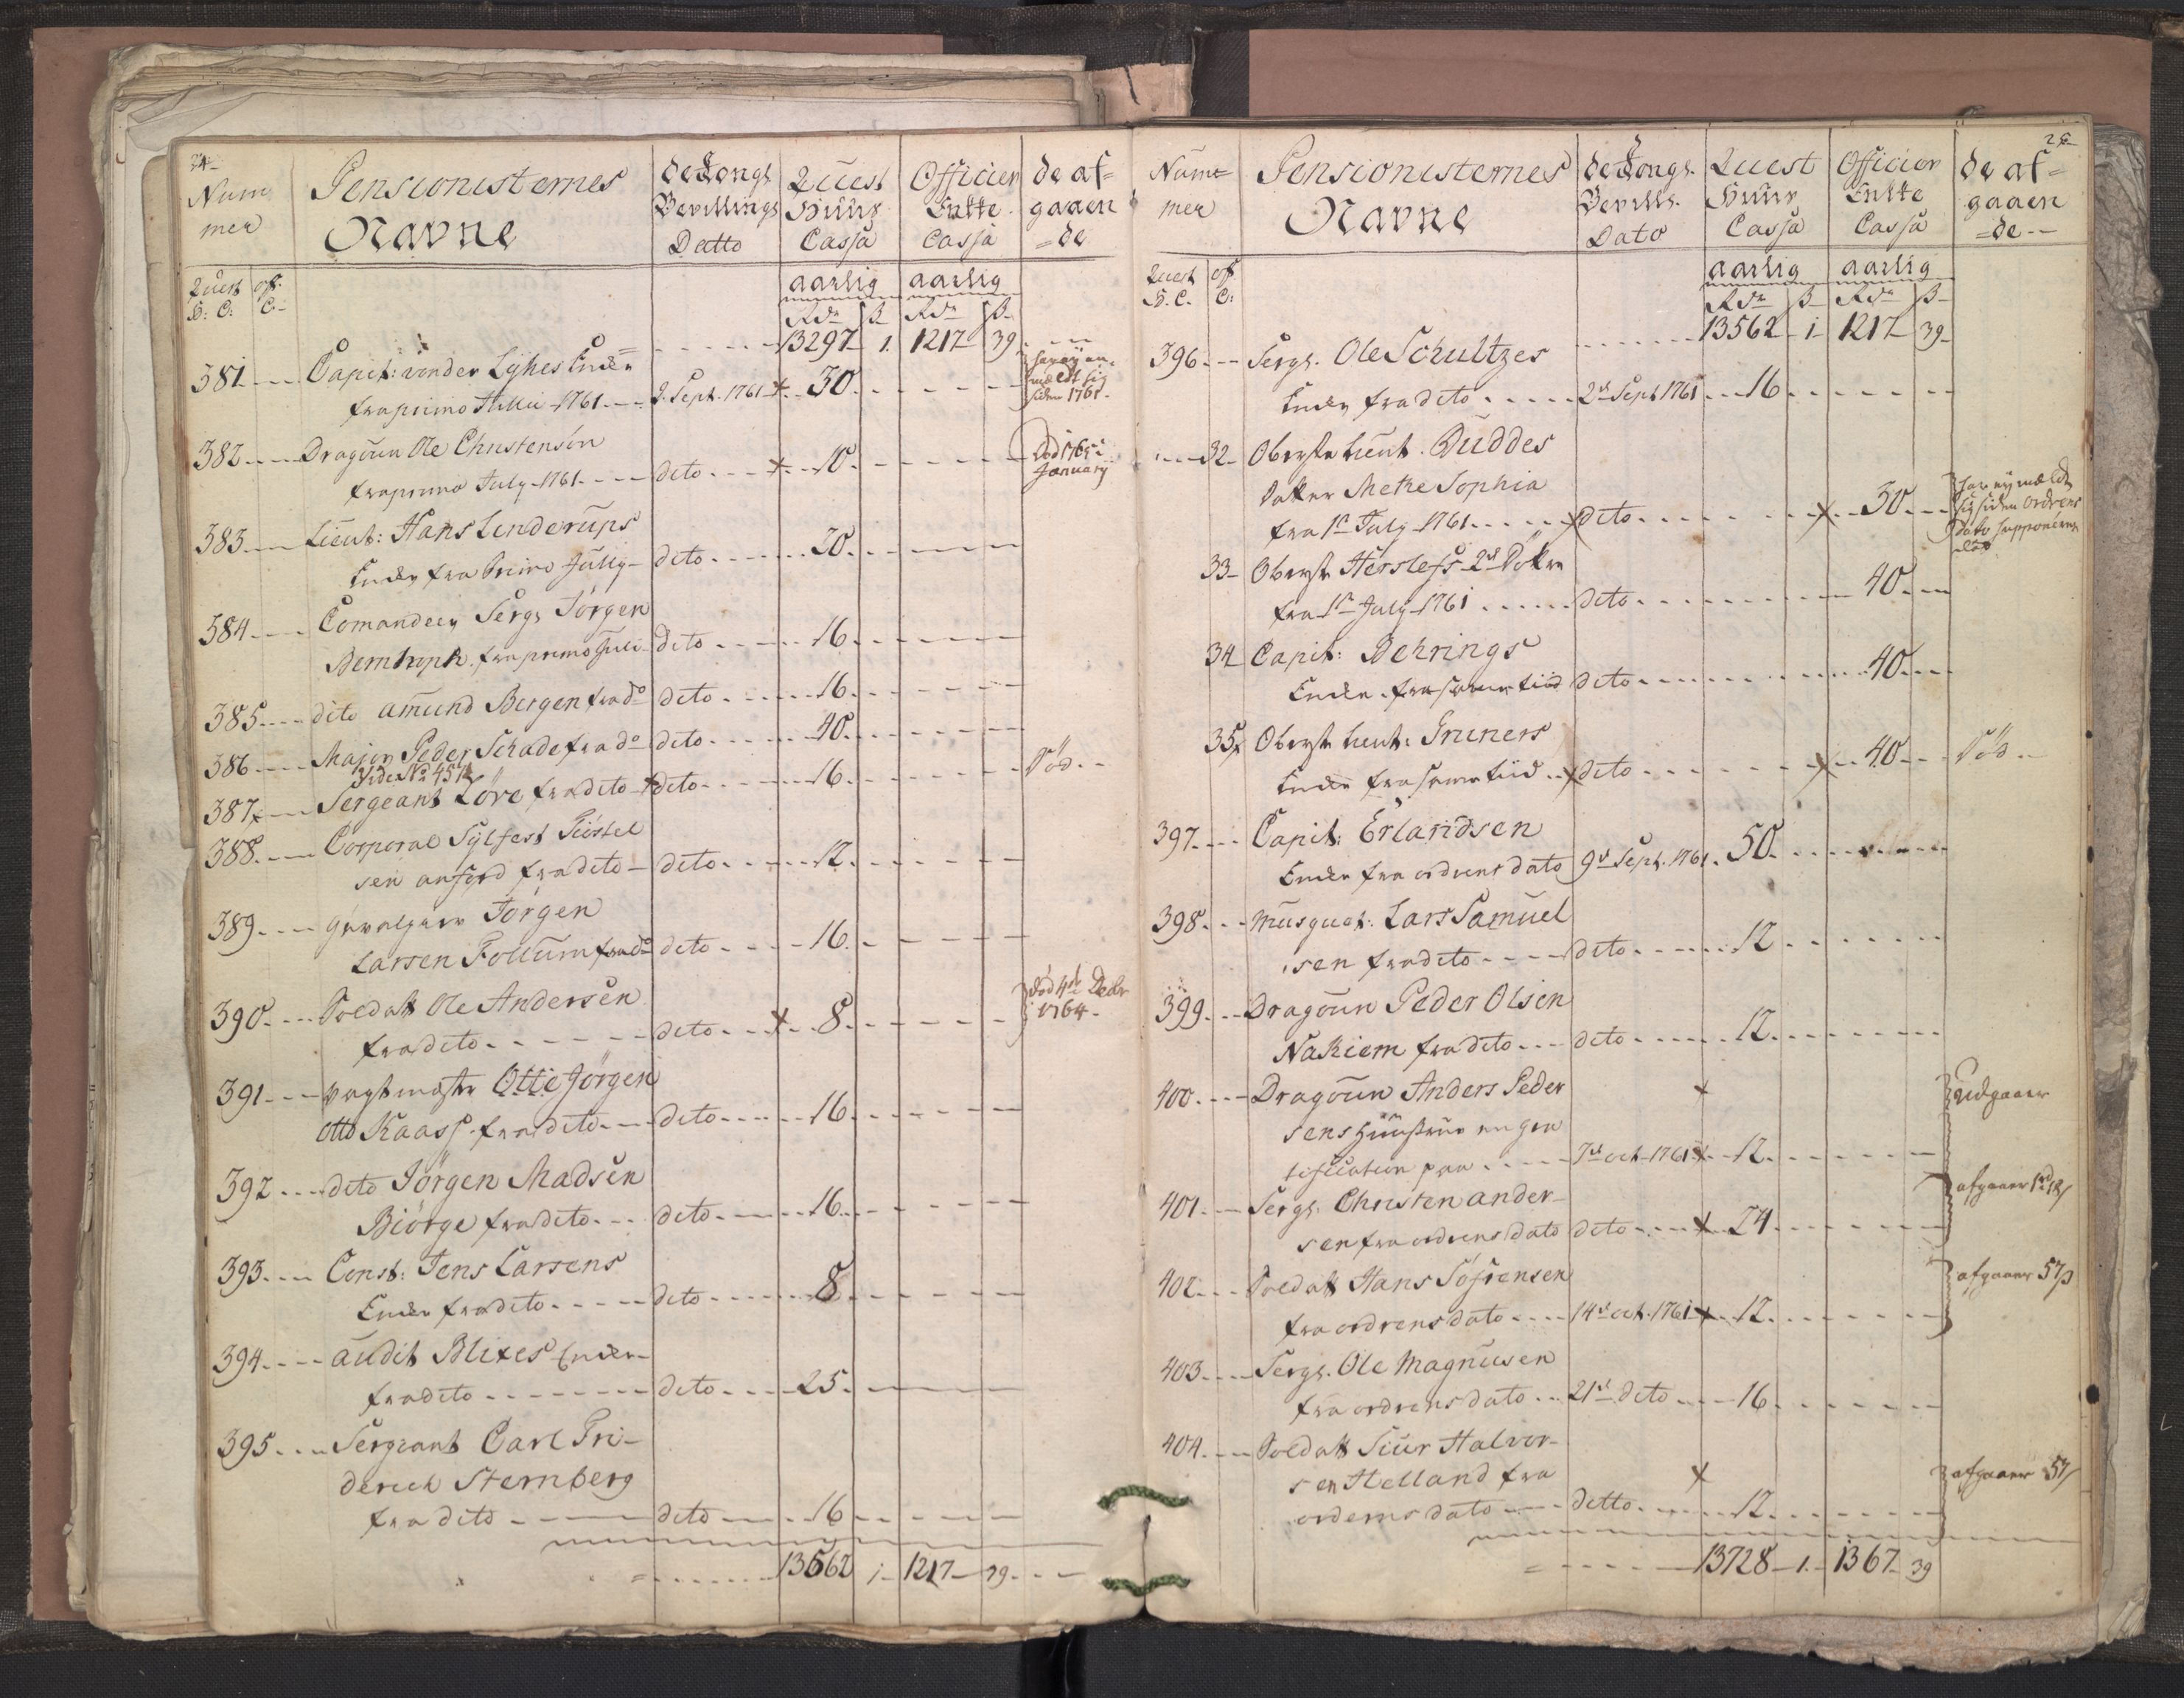 24
Num
mer
Pensionisternes
Navne
de Kongl
Bevillings
Datto
Quest
Huus
Cassa
Officier
Enkke
Cassa
de af=
gaaen
=de
Quest off:
H: C: C:
aarlig aarlig
Rdr ß Rdr ß
13297 1. 1217 39
381 Capit: vonder Lyhes Enke
fra primo Julii 1761 2. Sept. 1761 30.
har ey an-
meldt sig
siden 1761.
382 Dragoun Ole Christensön
fra primo July 1761 dito 10.
Död 1765 i
January
383 Lieut: Hans Lenderups
Enke fra Primo July dito 20.
384 Comandeer Sergt Jörgen
Berntroph. fra primo Juli dito 16.
385 dito amund Bergen frado dito 16.
386 Major Peder Schade frado dito 40.
Vide No 451
387 Sergeant Löve fradito dito 16.
Död
388. Corporal Sylfest Tiöstel
sen ansexd fradito dito 12.
389 Gevalger Jörgen
Larsen Follum frado dito 16.
390 Soldatt Ole Andersen
fradito dito 8.
död 4de Decbr
1764
391 Vagtmestr Otte Jörgen
Otto Kaass. fradito dito 16.
392 dito Jörgen Madsen
Biörge fradito dito 16.
393 Const: Jens Larsens
Enke fradito dito 8
394 audit Blixes Enke
fradito dito 25.
395 Sergeant Carl Fri-
derich Sternberg
fra dito dito 16
13562 1 1217 39
25
Num=
mer
Pensionisternes
Navne
de Kongl.
Bevills.
Dato
Quest
Huus
Cassa
Officier
Enkke
Cassa
de af=
gaaen
=de
Quest off
H. C. C:
aarlig aarlig
Rdr ß Rdr ß
13562 1 1217 39
396 Sergt. Ole Schultzes
Enke fra dito 2de Sept 1761 16
32 Oberste Lieut. Buddes
Datter Mette Sophia
fra 1te July 1761 dito 30
har ey meldt
sig siden ordrens
Dato supponeres
död
33 Oberst Herslefs 2de Döttre
fra 1te July 1761 dito 40
34 Capit: Behrings
Enke fra samme tiid dito 40
35 Oberst Lieut: Gruners
Enke fra samme tiid dito 40
Död
397 Capit: Erlandsen
Enke fra ordrens dato 9de Sept. 1761. 50.
398 Musquet: Lars Samuel
sen fradito dito 12
399 Dragoun Peder Olsen
Nakiem fra dito dito 12.
400 Dragoun Anders Peder
sens Huustrue en gra
tification paa 7de oct. 1761 12.
Udgaaer
401 Sergt. Christen ander-
sen fra ordrens dato dito 24
402 Soldatt Hans Söfrensen
fra ordrens dato 14de oct. 1761 12.
afgaaer 57
403 Sergt. Ole Magnusen
fra ordrens dato 21de dito 16
404 Soldatt Siur Halvor-
sen Helland fra
ordrens dato ditto 12
afgaaer 57
13728 1. 1367 39